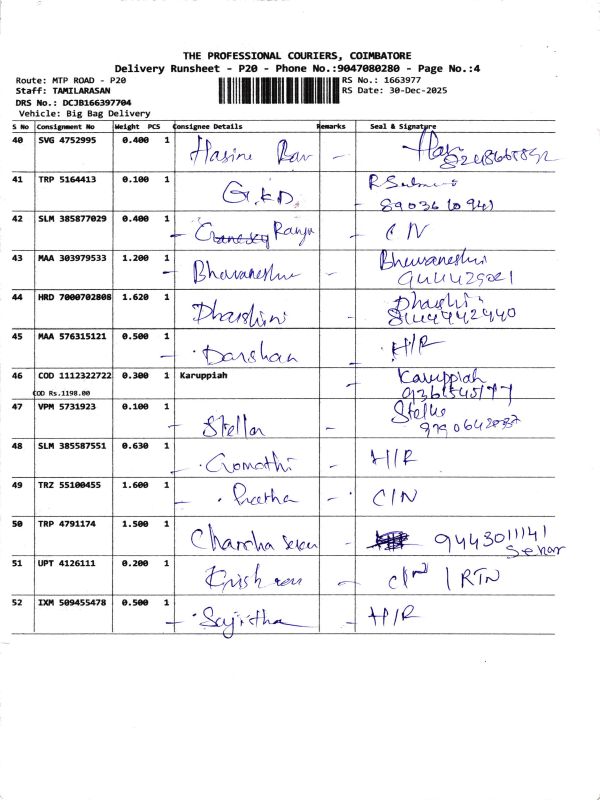 THE PROFESSIONAL COURIERS, COIMBATORE
Delivery Runsheet - P20 - Phone No.:9047080280 - Page No.:4
Route: MTP ROAD - P20 RS No.: 1663977
Staff: TAMILARASAN RS Date: 30-Dec-2025
DRS No.: DCJB166397704
Vehicle: Big Bag Delivery
S No Consignment No Weight PCS Consignee Details Remarks Seal & Signature
40 SVG 4752995 0.400 1 Hasini
41 TRP 5164413 0.100 1 G.K.D.
42 SLM 385877029 0.400 1 Ranju C/N
43 MAA 303979533 1.200 1 Bhuvaneshwari Bhuvaneshwari
44 HRD 7000702808 1.620 1 Dharshini Dharshi
45 MAA 576315121 0.500 1 Darshan H/R
46 COD 1112322722 0.300 1 Karuppiah Karuppiah
COD Rs.1198.00
47 VPM 5731923 0.100 1 Stellar
48 SLM 385587551 0.630 1 Gomathi H/R
49 TRZ 55100455 1.600 1 Preetha C/N
50 TRP 4791174 1.500 1 9443011141
Sekar
51 UPT 4126111 0.200 1 / RTN
52 IXM 509455478 0.500 1 Sajitha H/R